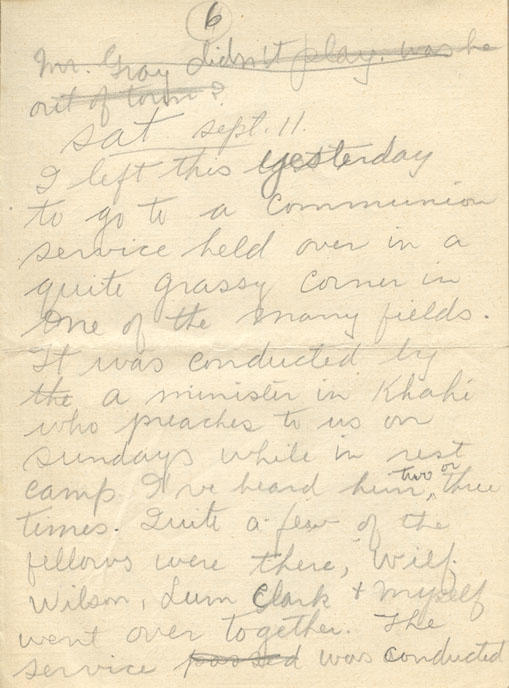 6
Mr. Gray didn't play. was he
out of town?
Sat Sept. 11.
I left this yesterday
to go to a Communion
service held over in a
quite grassy corner in
one of the many fields.
It was conducted by
the a minister in Khaki
who preaches to us on
Sundays while in rest
camp. I've heard him two or three
times. Quite a few of the
fellows were there, Wilf.
Wilson, Lum Clark + myself
went over together. The
service passed was conducted